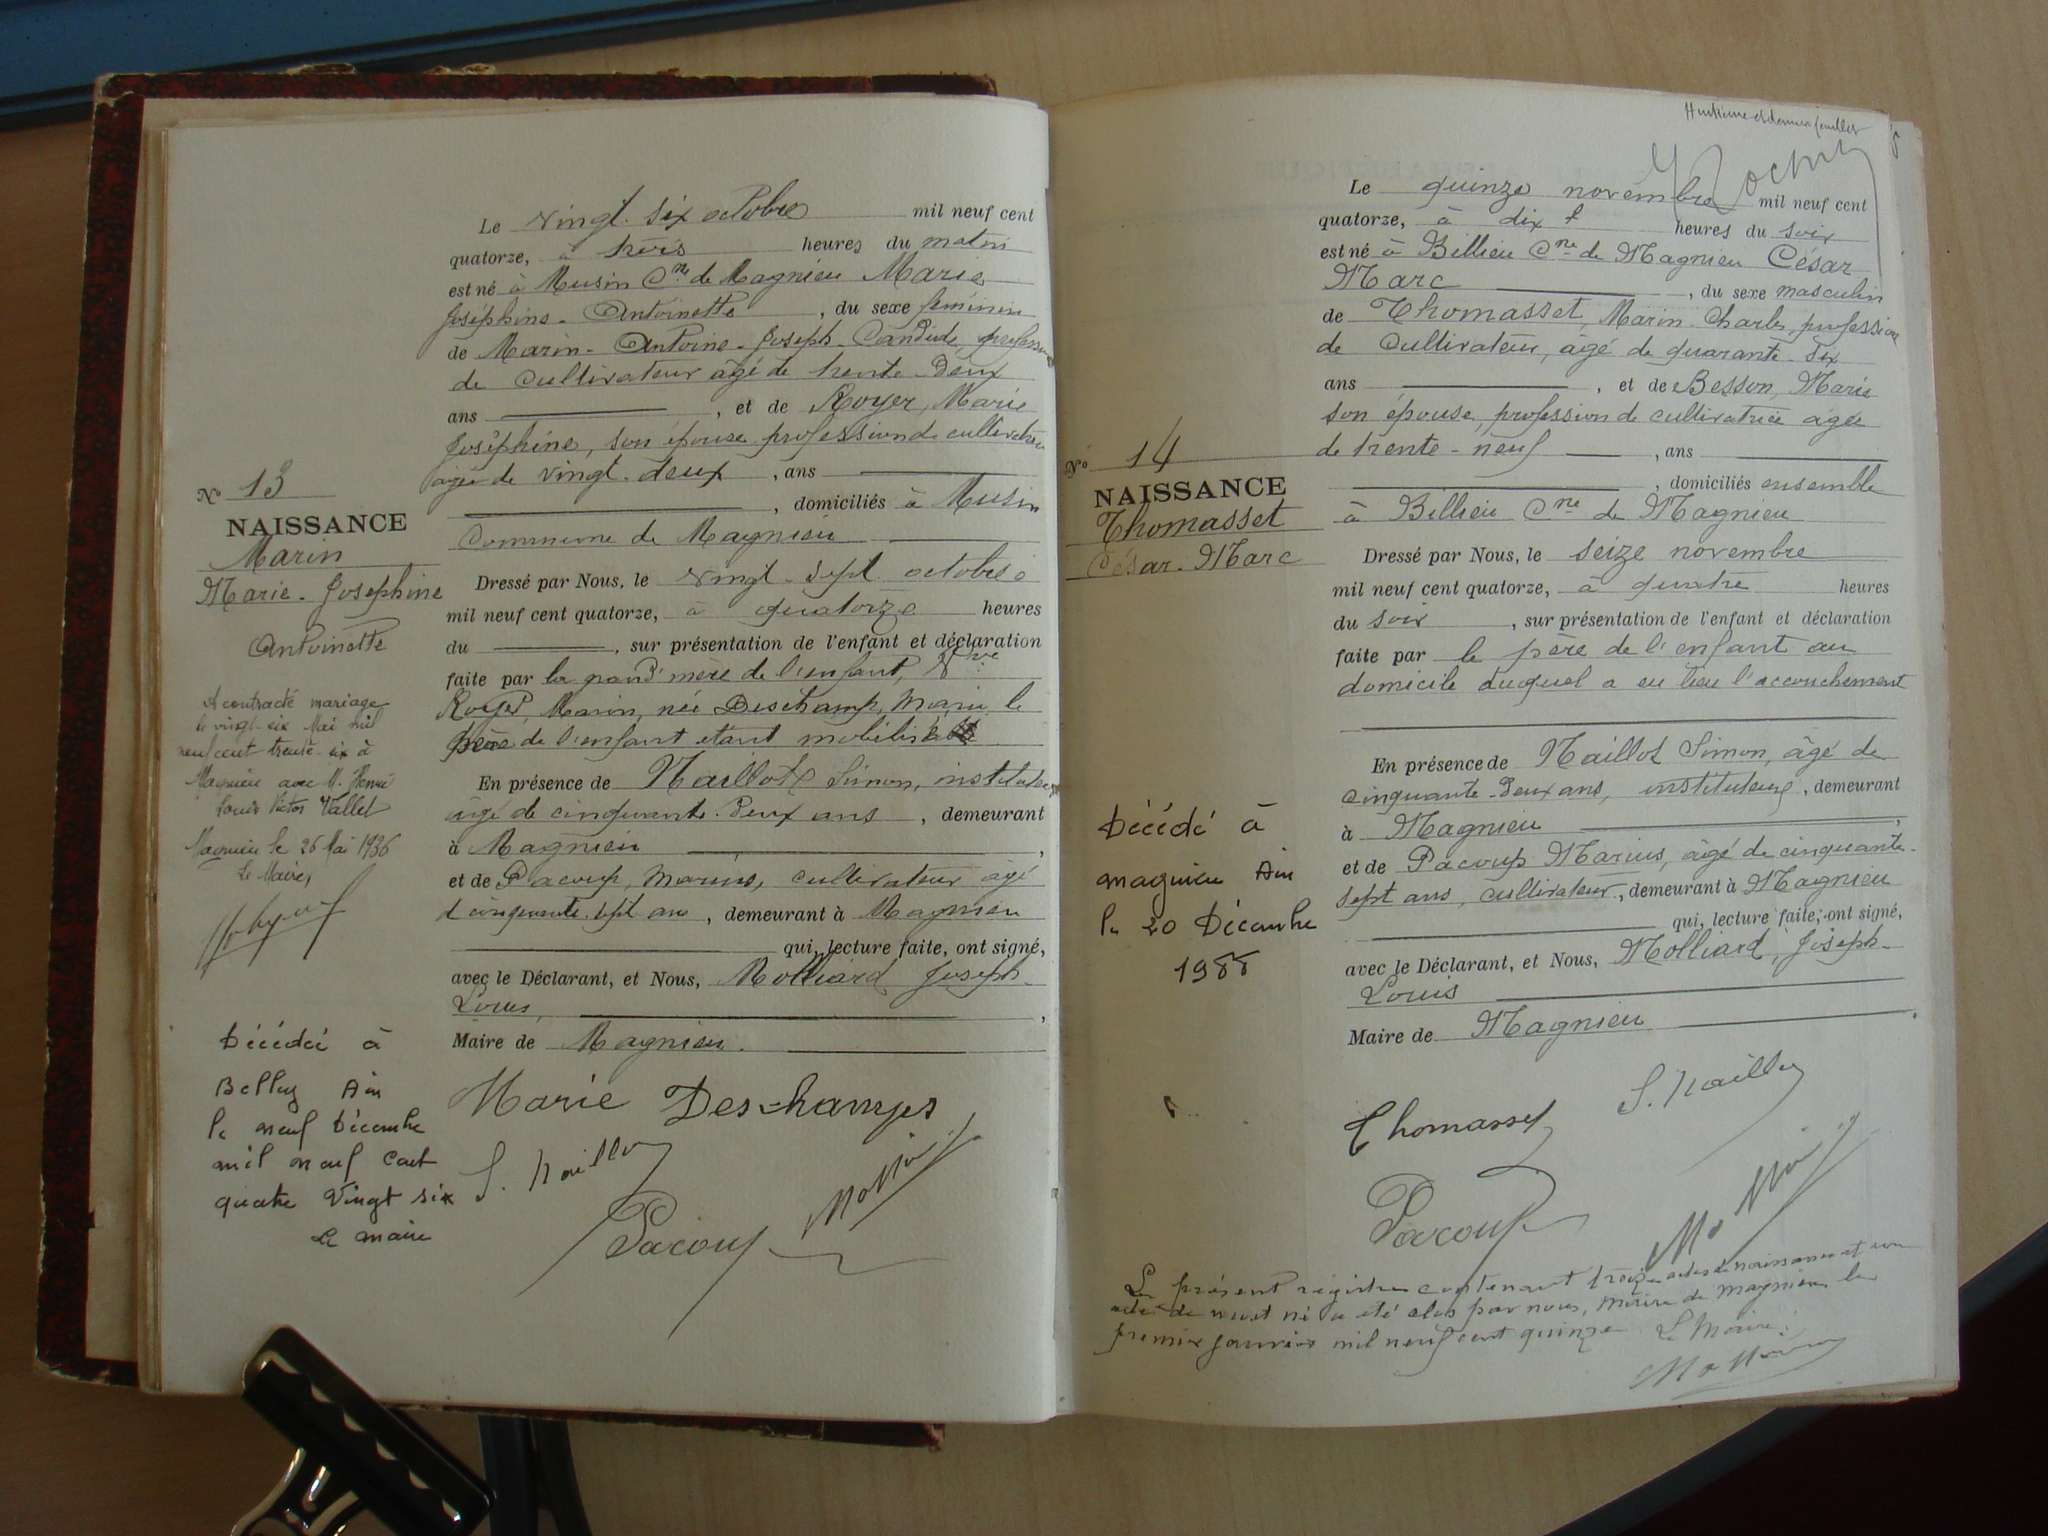 Le vingt-six octobre mil neuf cent
quatorze, à trois heures du matin
est né à Musin Cne de Magnieu Marie
Joséphine-Antoinette, du sexe féminin
de Marin-Antoine-Joseph-Candide, profession
de cultivateur âgé de trente-deux
ans, et de Royer, Marie
Joséphine, son épouse profession de cultivatrice
âgée de vingt-deux, ans
, domiciliés à Musin
Commune de Magnieu
Nº 13
NAISSANCE
Marin
Marie-Joséphine
Antoinette
Dressé par Nous, le vingt-sept octobre
mil neuf cent quatorze, à quatorze heures
du , sur présentation de l'enfant et déclaration
faite par la grand'mère de l'enfant, Vve
Royer, Marin, née Deschamp, Marie, le
père de l'enfant étant mobilisé
En présence de Naillod Simon, instituteur
âgé de cinquante-deux ans, demeurant
à Magnieu,
et de Pacoup, Marius, cultivateur âgé
d cinquante-sept ans, demeurant à Magnieu
qui, lecture faite, ont signé,
avec le Déclarant, et Nous, Molliard Joseph-
Louis,
Maire de Magnieu.
A contracté mariage
le vingt-six Mai mil
neuf cent trente-six à
Magnieu avec M. Henri
Louis Victor Vallet
Magnieu le 26 Mai 1936
Le Maire,
Décédée à
Belley Ain
le neuf Décembre
mil neuf cent
quatre vingt six
Le maire
Marie Deschamps
S. Naillod
Pacoup
Huitième et dernier feuillet
Le quinze novembre mil neuf cent
quatorze, à dix heures du soir
est né à Billieu Cne de Magnieu César
Marc, du sexe masculin
de Thomasset, Marin-Charles, profession
de Cultivateur, âgé de quarante-six
ans, et de Besson, Marie
son épouse, profession de cultivatrice âgée
de trente-neuf, ans
, domiciliés ensemble
à Billieu Cne de Magnieu
Nº 14
NAISSANCE
Thomasset
César-Marc
Dressé par Nous, le seize novembre
mil neuf cent quatorze, à quatre heures
du soir, sur présentation de l'enfant et déclaration
faite par le père de l'enfant au
domicile duquel a eu lieu l'accouchement
En présence de Naillod Simon, âgé de
cinquante-deux ans, instituteur, demeurant
à Magnieu,
et de Pacoup Marius, âgé de cinquante-
sept ans, cultivateur, demeurant à Magnieu
qui, lecture faite, ont signé,
avec le Déclarant, et Nous, Molliard, Joseph-
Louis
Maire de Magnieu.
Décédé à
magnieu Ain
le 20 Décembre
1988
Thomasset
S. Naillod
Pacoup
Le présent registre contenant treize actes de naissances et un
acte de mort né a été clos par nous, Maire de Magnieu le
premier janvier mil neuf cent quinze Le Maire: